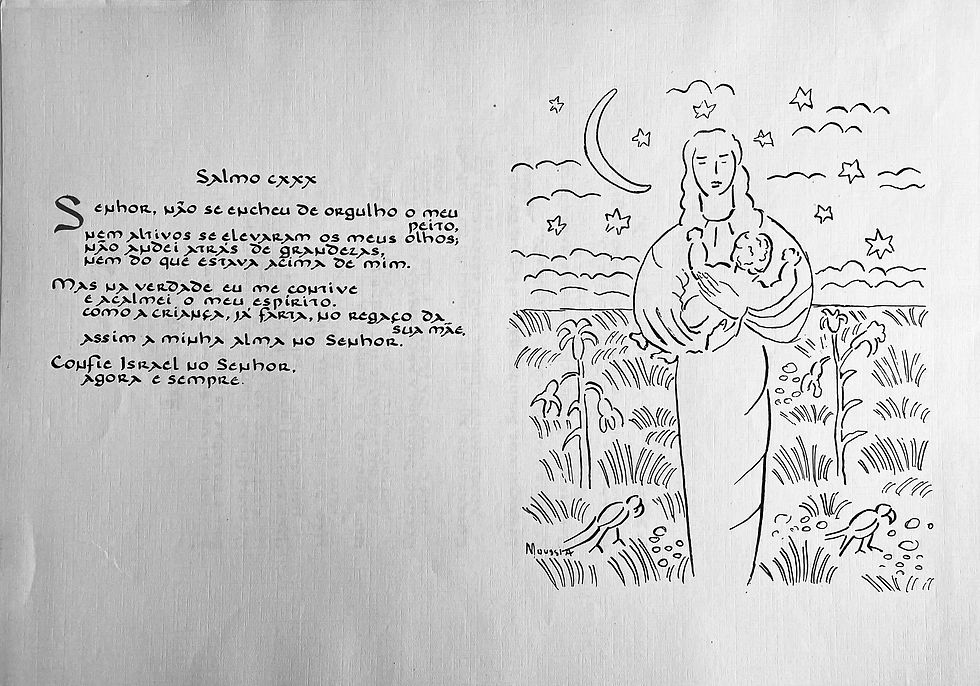 Salmo CXXX
Senhor, não se encheu de orgulho o meu
peito,
nem altivos se elevaram os meus olhos;
não andei atrás de grandezas,
nem do que estava acima de mim.
Mas na verdade eu me contive
e acalmei o meu espírito.
como a criança, já farta, no regaço da
sua mãe,
assim a minha alma no Senhor.
Confie Israel no Senhor,
agora e sempre.
Moussia